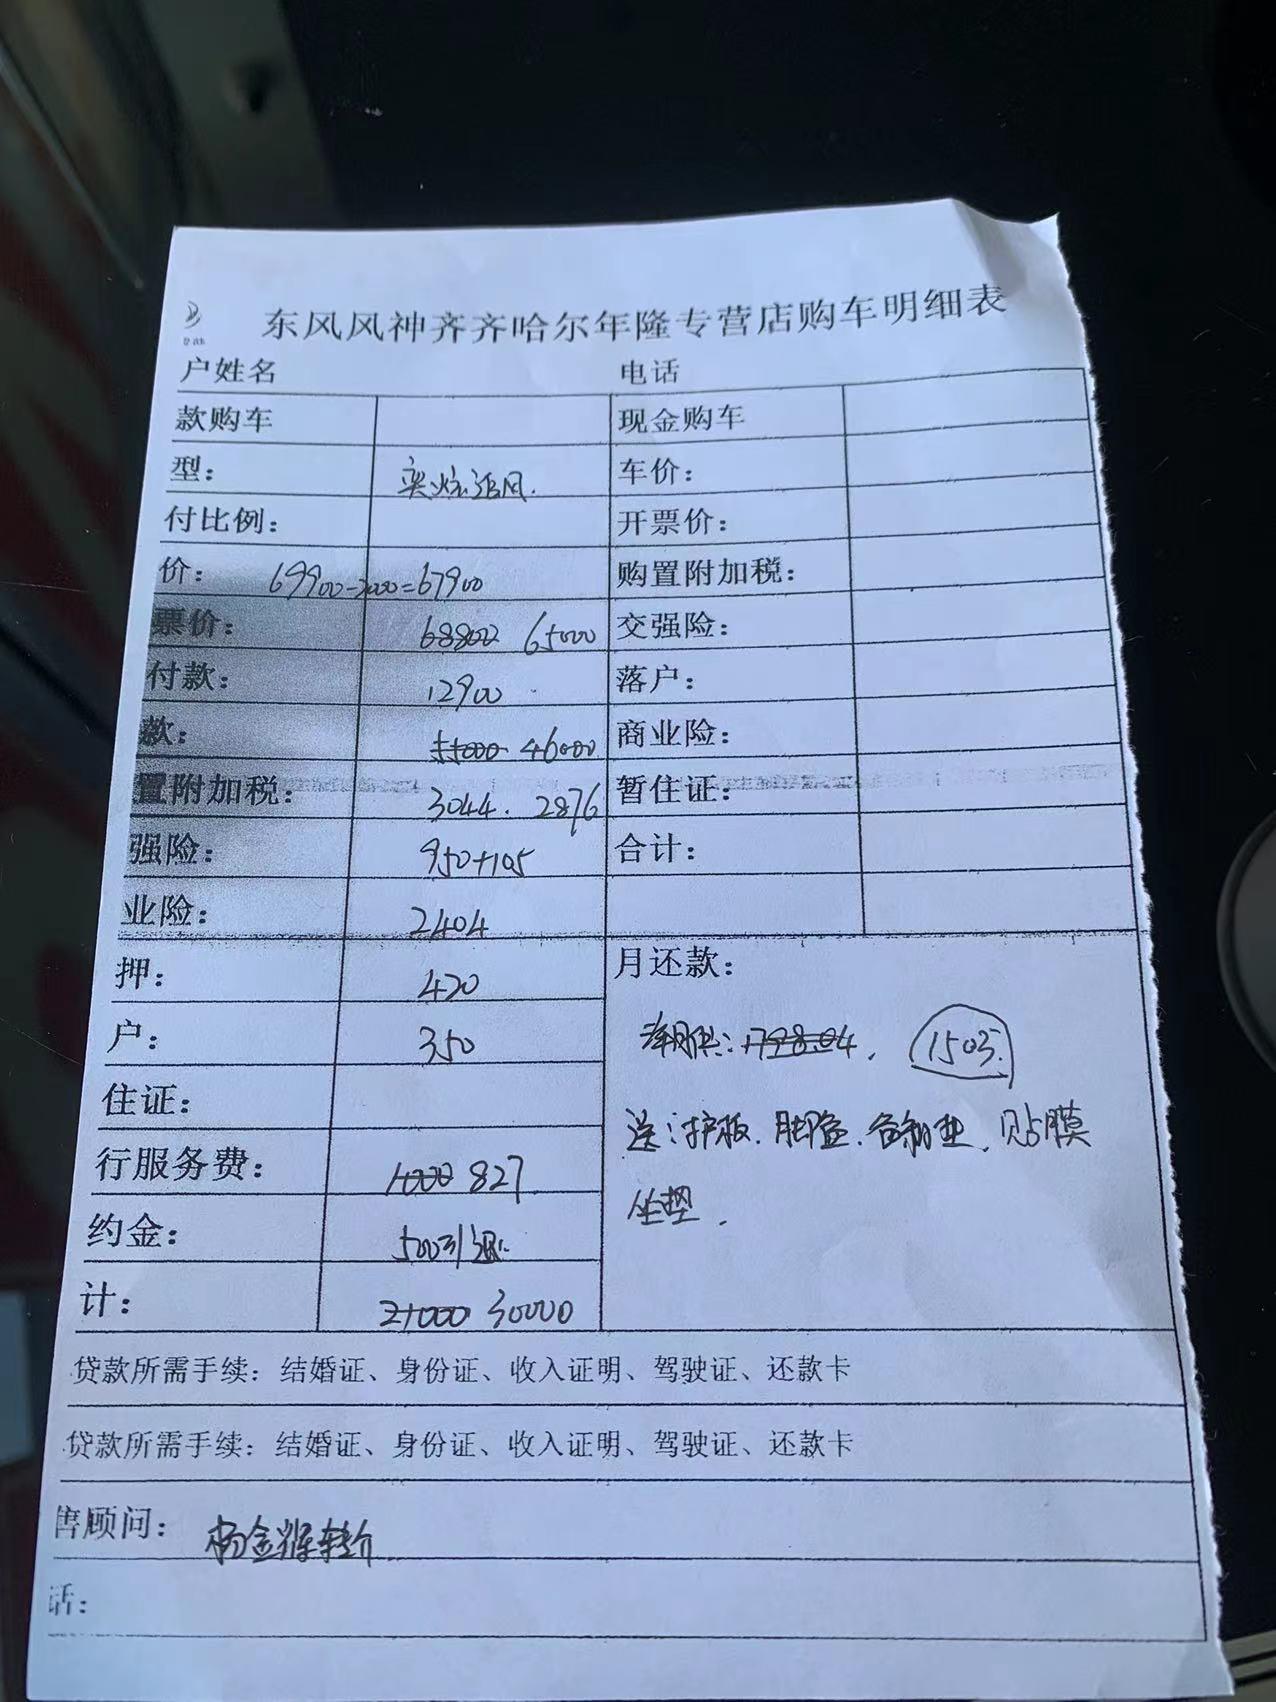 东风风神齐齐哈尔年隆专营店购车明细表
户姓名 电话
款购车 现金购车
型: 奕炫追风. 车价:
付比例: 开票价:
价: 69900-2000=67900 购置附加税:
票价: 68800 65000 交强险:
付款: 12900 落户:
款: 55000 46000 商业险:
置附加税: 3044. 2876 暂住证:
强险: 950+105 合计:
业险: 2404
押: 420 月还款:
户: 350 1798.04. 1503.
住证: 送:护板.脚垫. 贴膜
行服务费: 1000 827
约金: 500可退. 坐垫.
计: 21000 30000
贷款所需手续:结婚证、身份证、收入证明、驾驶证、还款卡
贷款所需手续:结婚证、身份证、收入证明、驾驶证、还款卡
售顾问: 杨金辉转介
话: